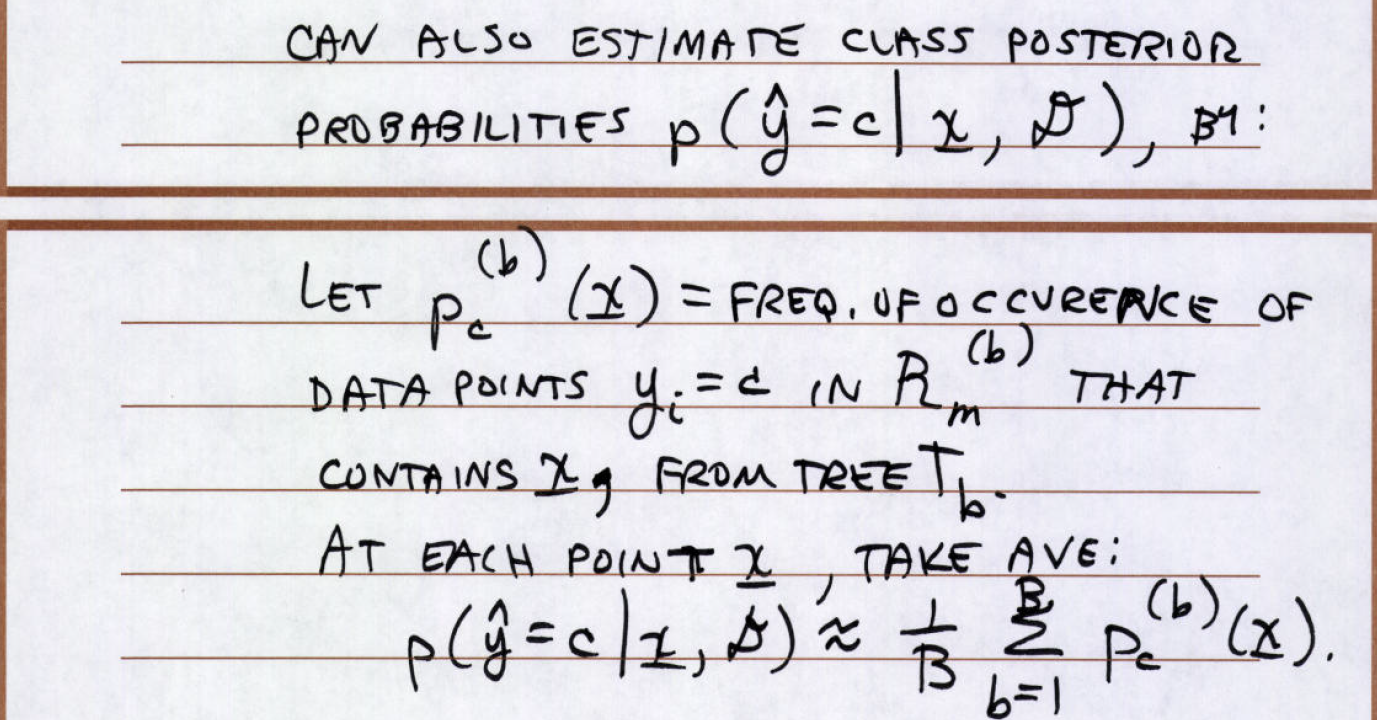 CAN ALSO ESTIMATE CLASS POSTERIOR
PROBABILITIES p(ŷ = c | x̲, 𝒟), BY:
LET p_c^(b) (x̲) = FREQ. OF OCCURENCE OF
DATA POINTS y_i = c IN R_m^(b) THAT
CONTAINS x̲, FROM TREE T_b.
AT EACH POINT x̲, TAKE AVE:
p(ŷ = c | x̲, 𝒟) ≈ 1/B ∑_{b=1}^{B} p_c^(b) (x̲).